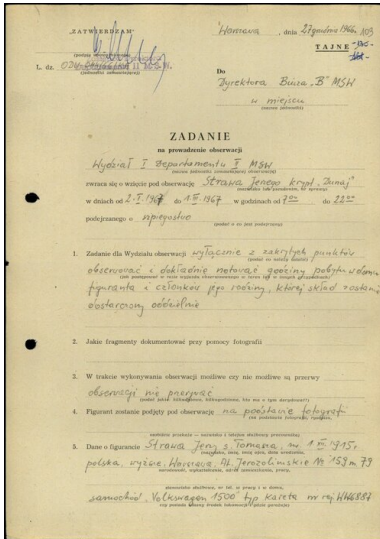 „ZATWIERDZAM"
Warszawa, dnia 27 grudnia 1966. 103
TAJNE
L. dz.
(jednostki zamawiającej)
Do
Dyrektora Biura „B" MSW
w miejscu
ZADANIE
na prowadzenie obserwacji
Wydział I Departamentu II MSW
zwraca się o wzięcie pod obserwację Strawa Jerzego krypt. „Dunaj"
w dniach od 2-I-1967 do 1-III-1967 w godzinach od 7 00 do 22 00
podejrzanego o szpiegostwo
(podać o co jest podejrzany)
1. Zadanie dla Wydziału obserwacji wyłącznie z zakrytych punktów
obserwować i dokładnie notować godziny pobytu w domu
figuranta i członków jego rodziny, której skład zostanie
dostarczony oddzielnie
2. Jakie fragmenty dokumentować przy pomocy fotografii
3. W trakcie wykonywania obserwacji możliwe czy nie możliwe są przerwy
obserwacji nie przerywać
4. Figurant zostanie podjęty pod obserwację na podstawie fotografii
5. Dane o figurancie Strawa Jerzy s. Tomasza, ur. 1915 r.
polska, wyższe, Warszawa, Al. Jerozolimskie Nr 159 m 79
samochód „Volkswagen 1500" typ kareta nr rej WH6887